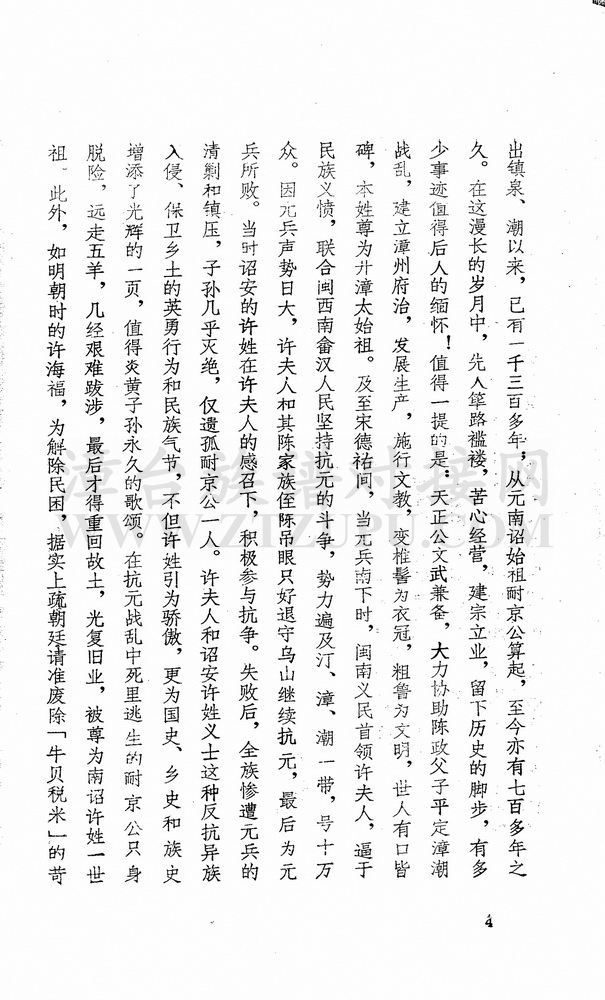 出镇泉、潮以来，已有一千三百多年；从元南诏始祖耐京公算起，至今亦有七百多年之
久。在这漫长的岁月中，先人筚路褴褛，苦心经营，建宗立业，留下历史的脚步，有多
少事迹值得后人的缅怀！值得一提的是：天正公文武兼备，大力协助陈政父子平定漳潮
战乱，建立漳州府治，发展生产，施行文教，变椎髻为衣冠，粗鲁为文明，世人有口皆
碑，本姓尊为升漳太始祖。及至宋德祐间，当元兵南下时，闽南义民首领许夫人，逼于
民族义愤，联合闽西南畲汉人民坚持抗元的斗争，势力遍及汀、漳、潮一带，号十万
众。因元兵声势日大，许夫人和其陈家族侄陈吊眼只好退守乌山继续抗元，最后为元
兵所败。当时诏安的许姓在许夫人的感召下，积极参与抗争。失败后，全族惨遭元兵的
清剿和镇压，子孙几乎灭绝，仅遗孤耐京公一人。许夫人和诏安许姓义士这种反抗异族
入侵、保卫乡土的英勇行为和民族气节，不但许姓引为骄傲，更为国史、乡史和族史
增添了光辉的一页，值得炎黄子孙永久的歌颂。在抗元战乱中死里逃生的耐京公只身
脱险，远走五羊，几经艰难跋涉，最后才得重回故土，光复旧业，被尊为南诏许姓一世
祖。此外，如明朝时的许海福，为解除民困，据实上疏朝廷请准废除「牛贝税米」的苛
4
WWW.ZTZUPU.COM